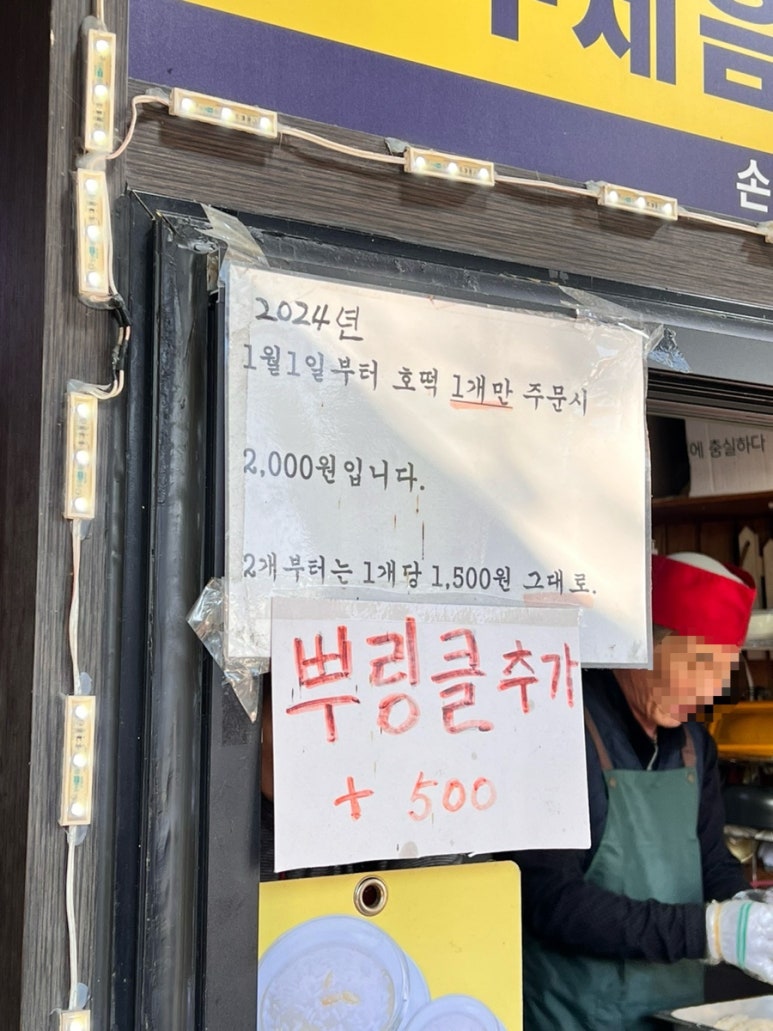 손
2024년
1월1일부터 호떡 1개만 주문시
2,000원입니다.
2개부터는 1개당 1,500원 그대로.
뿌링클 추가
+ 500
에 충실하다